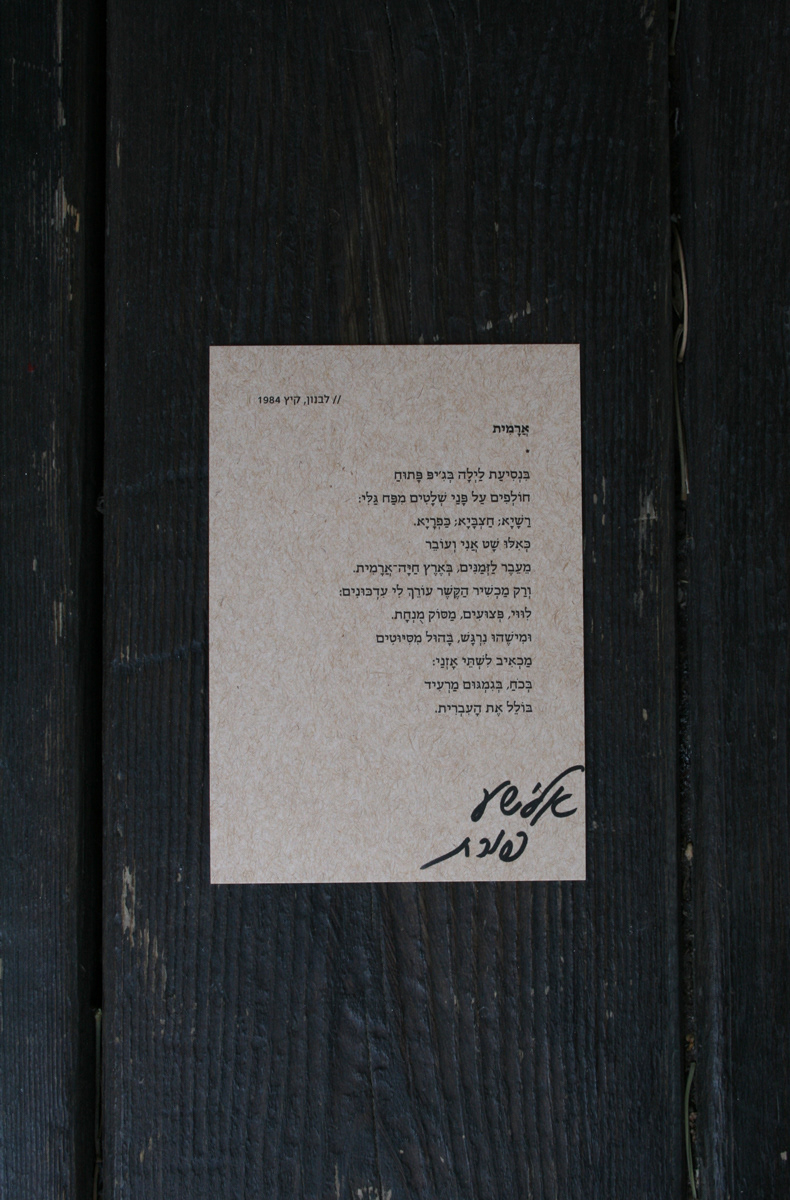 // לבנון, קיץ 1984
אֲרָמִית
*
בִּנְסִיעַת לַיְלָה בְּגִ׳יפּ פָּתוּחַ
חוֹלְפִים עַל פָּנַי שְׁלָטִים מִפַּח גַּלִּי:
רַשָׁיָא; חַצְבָּיָא; כַּפְרָיָא.
כְּאִלּוּ שָׁט אֲנִי וְעוֹבֵר
מֵעֵבֶר לַזְּמַנִּים, בְּאֶרֶץ חַיָּה־אֲרָמִית.
וְרַק מַכְשִׁיר הַקֶּשֶׁר עוֹרֵךְ לִי עִדְכּוּנִים:
לִוּוּי, פְּצוּעִים, מַסּוֹק מֻנְחָת.
וּמִישֶׁהוּ נִרְגָּשׁ, בָּהוּל מִסִּיּוּטִים
מַכְאִיב לִשְׁתֵּי אָזְנַי:
בְּכֹחַ, בְּגִמְגּוּם מַרְעִיד
בּוֹלֵל אֶת הָעִבְרִית.
אלישע
פורת